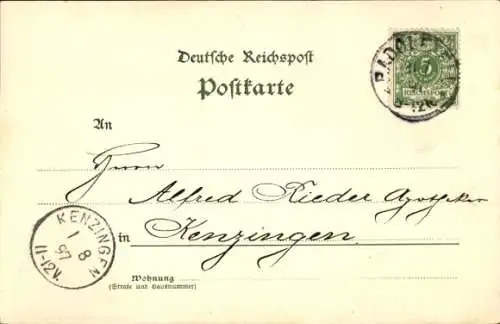 Deutsche Reichspost
Postkarte
RADOLFZELL
5
REICHSPOST
An
Herrn
Alfred Rieder Apotheker
in Kenzingen.
KENZINGEN
1 8
97
11-12V.
Wohnung
(Straße und Hausnummer)